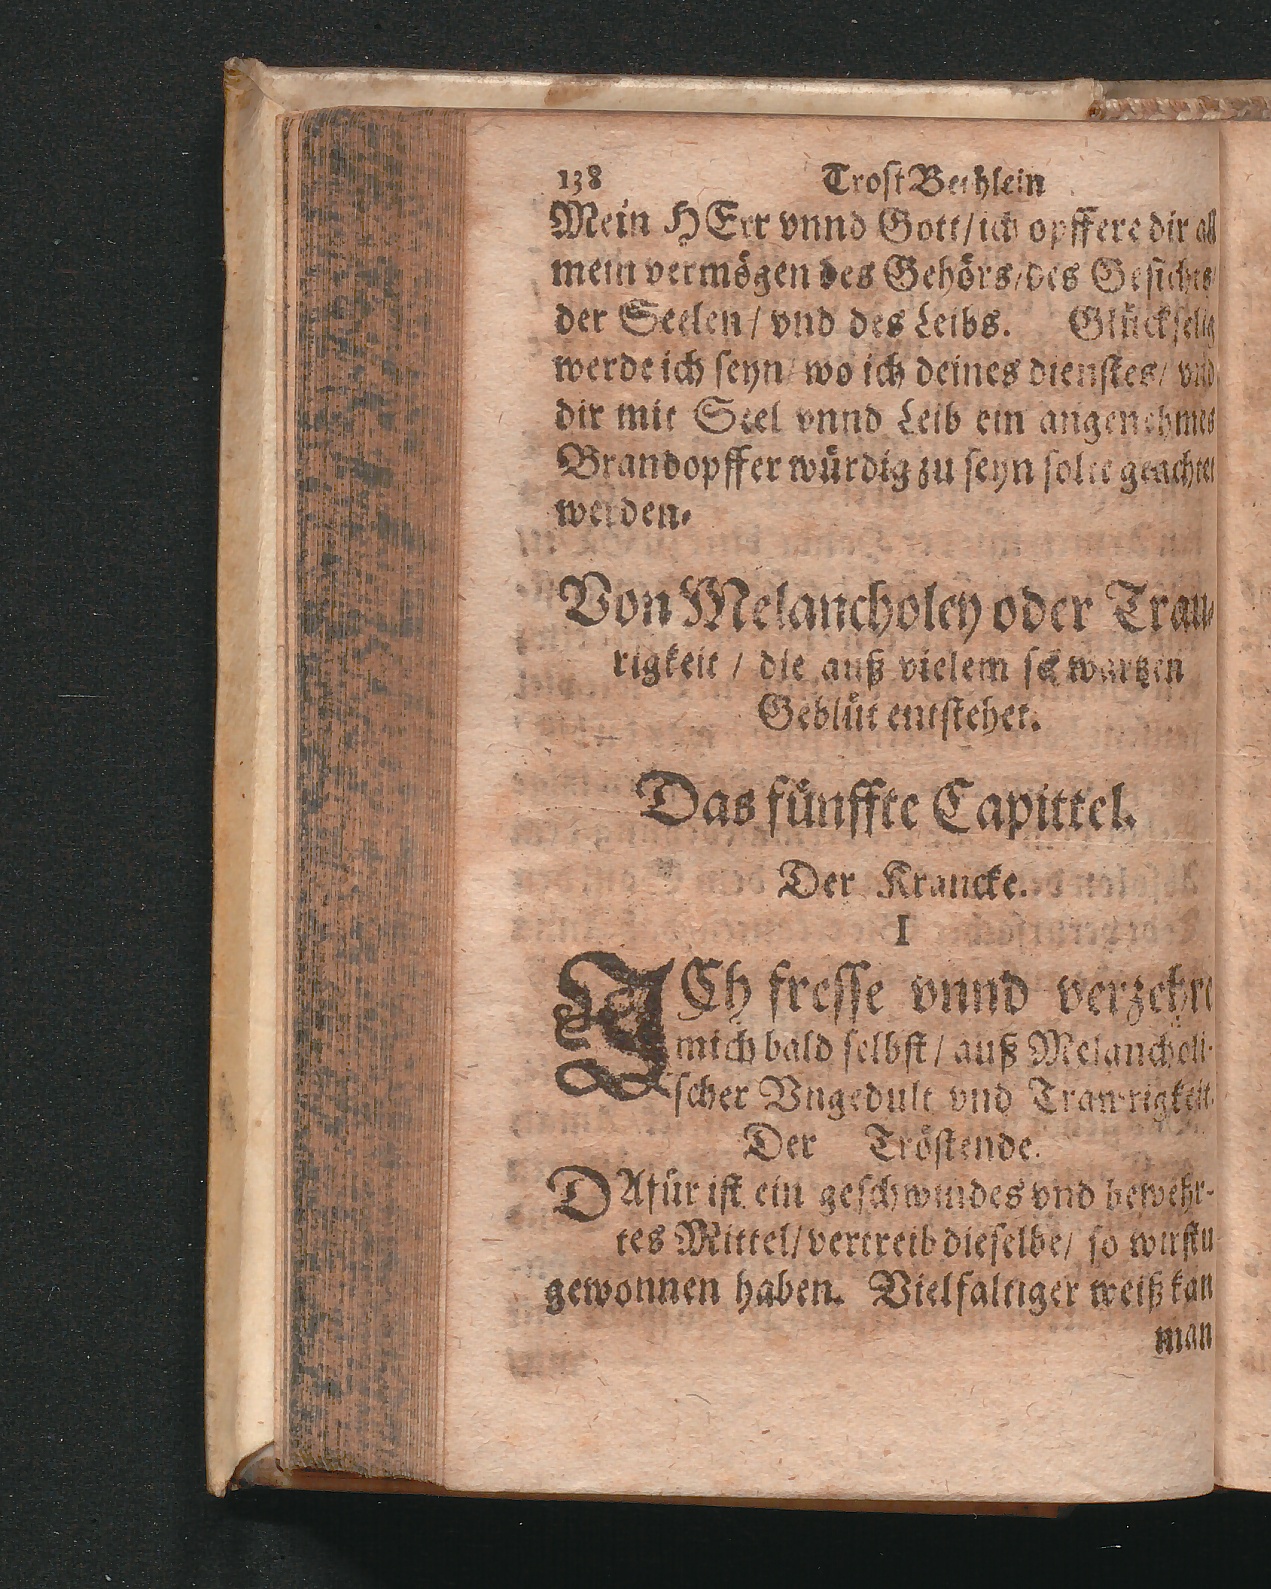 138 Trost Buchlein
Mein HErr vnnd Gott/ich opffere dir all
mein vermögen des Gehörs/des Gesichts/
der Seelen/vnd des Leibs. Glückselig
werde ich seyn/wo ich deines dienstes/ vnd
dir mit Seel vnnd Leib ein angenehmes
Brandopffer würdig zu seyn solte geachtet
werden.
Von Melancholey oder Trau-
rigkeit / die auß vielem schwartzen
Geblüt entstehet.
Das fünffte Capittel.
Der Krancke.
I
ICh fresse vnnd verzehre
mich bald selbst/auß Melancholi-
scher Vngedult vnd Trawrigkeit.
Der Tröstende.
DAfür ist ein geschwindes vnd bewehr-
tes Mittel/vertreib dieselbe/ so wirstu
gewonnen haben. Vielfaltiger weiß kan
man